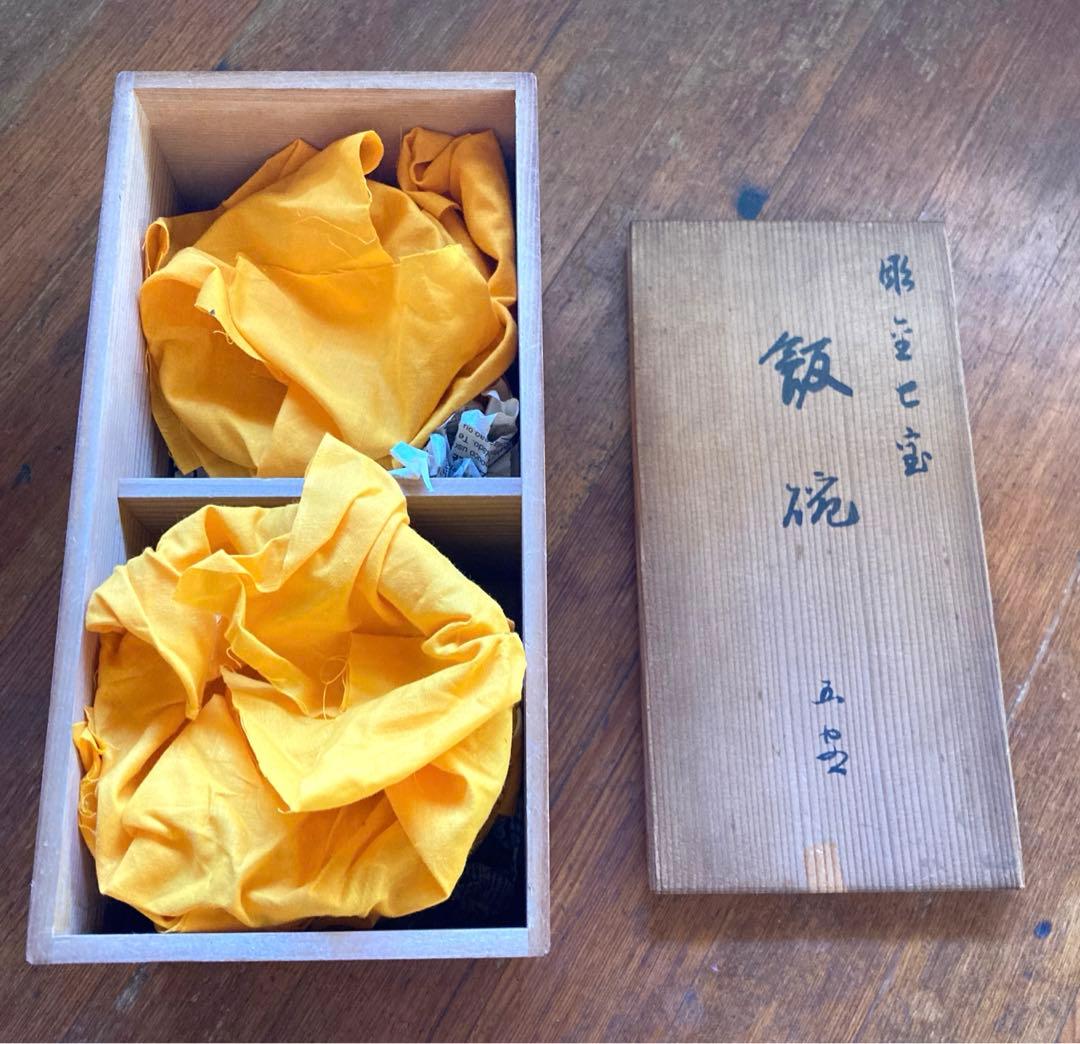 彫金七宝
飯碗
五客